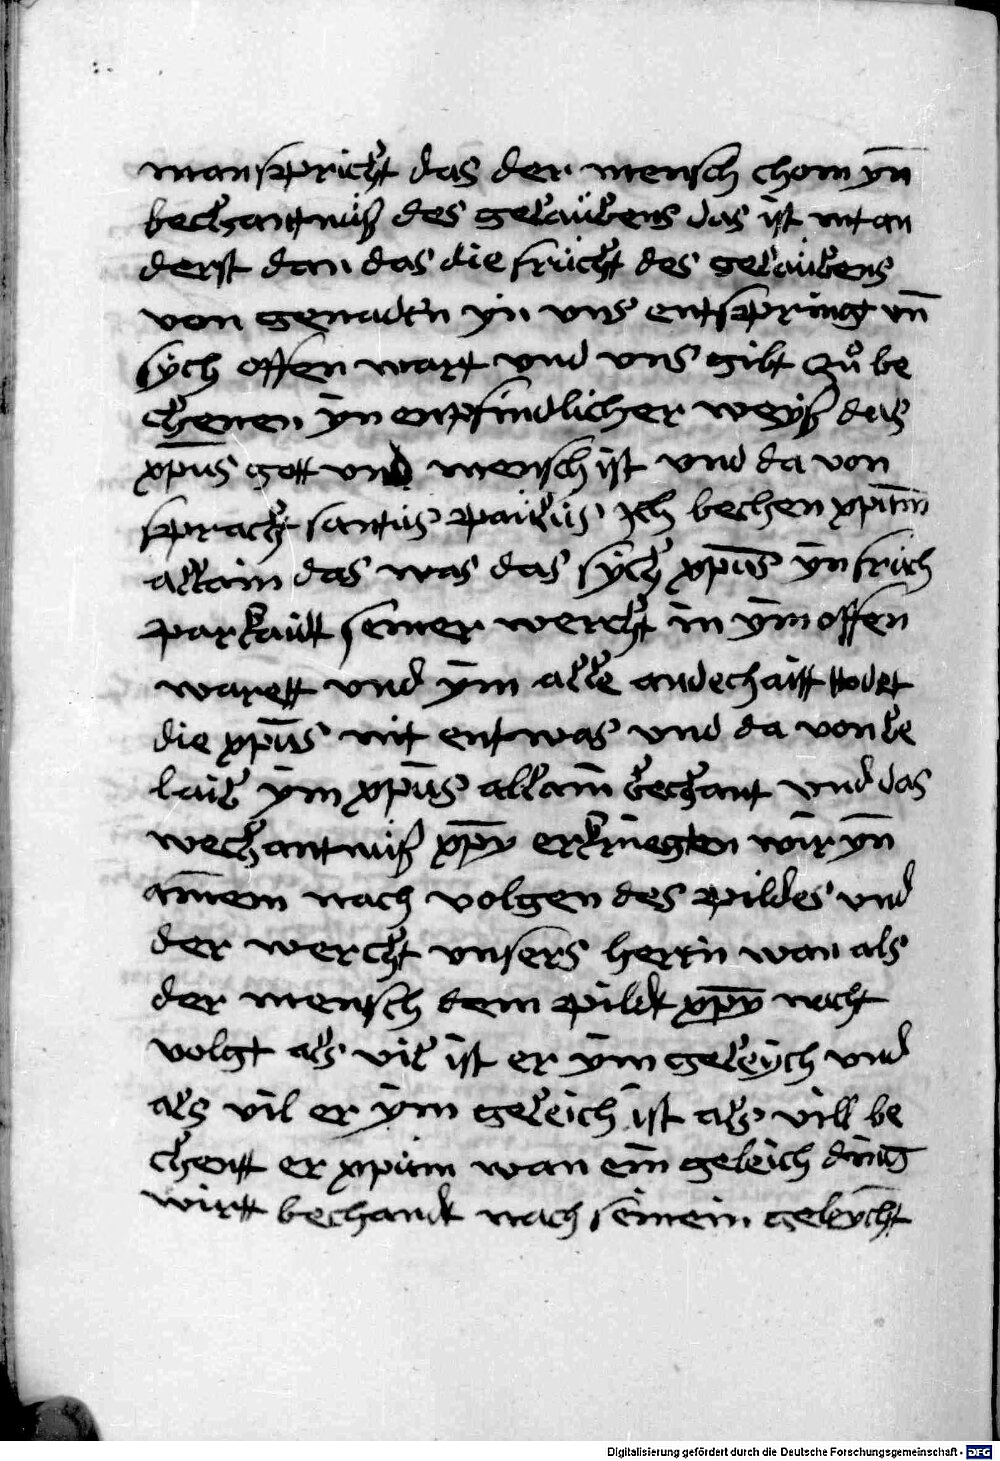 man spricht das der mensch chom yn̄
bechantnüß des gelaübens das ist nit an
derst dan das die frücht des gelaübens
von genadn̄ yn vns entspring vn̄
sych offen wart vnd vns gibt zů be
chenen yn enpfindlicher weyß das
xp̄us gott vnd mensch ist vnd da von
sprach santüs paülüs Ich bechen xpm̄
allain das was das sych xp̄us yn früch
parkaitt seiner wercht in ym offen
warett vnd ym alle andechaitt todet
die xp̄us nit entwas vnd da von be
laib ym xp̄us allain bechant vnd das
wechantnüß xp̄y erkriegten wir yn̄
ainem nach volgen des pildes vnd
der wercht vnsers herrn wan als
der mensch dem pildt xp̄y nacht
volgt als vil ist er ym geleych vnd
als vil er ym geleich ist als vill be
chentt er xpm wan ein geleich ding
wirtt bechandt nach seinem geleycht
Digitalisierung gefördert durch die Deutsche Forschungsgemeinschaft - DFG